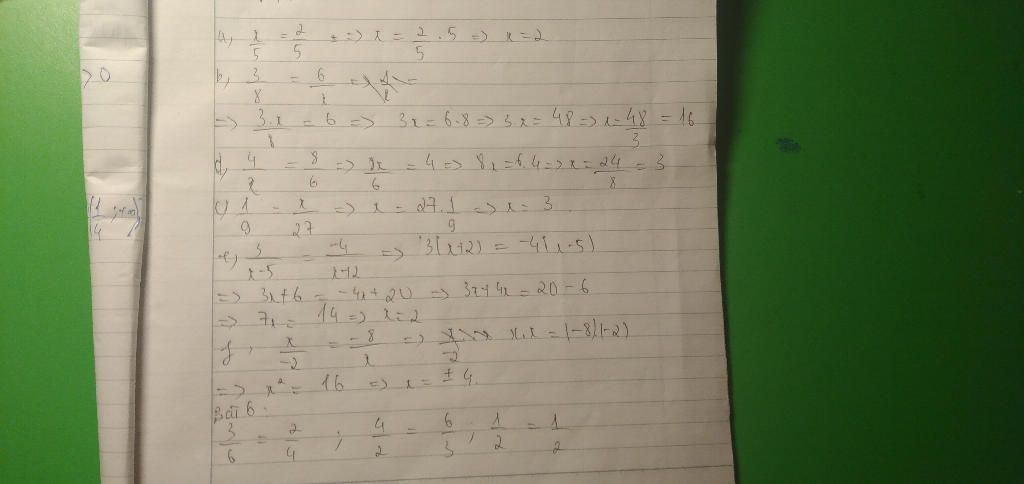 > 0
(1/4 ; +∞)
a, x/5 = 2/5 => x = 2/5 . 5 => x = 2
b, 3/8 = 6/x =>
=> 3.x/8 = 6 => 3x = 6.8 => 3x = 48 => x = 48/3 = 16
d, 4/x = 8/6 => 8x/6 = 4 => 8x = 6.4 => x = 24/8 = 3
c) 1/9 = x/27 => x = 27.1/9 => x = 3
e, 3/x-5 = -4/x+2 => 3(x+2) = -4(x-5)
=> 3x+6 = -4x+20 => 3x+4x = 20-6
=> 7x = 14 => x = 2
f, x/-2 = -8/x => x.x = (-8)(-2)
=> x² = 16 => x = ±4.
Bài 6:
3/6 = 2/4 ; 4/2 = 6/3 ; 1/2 = 1/2